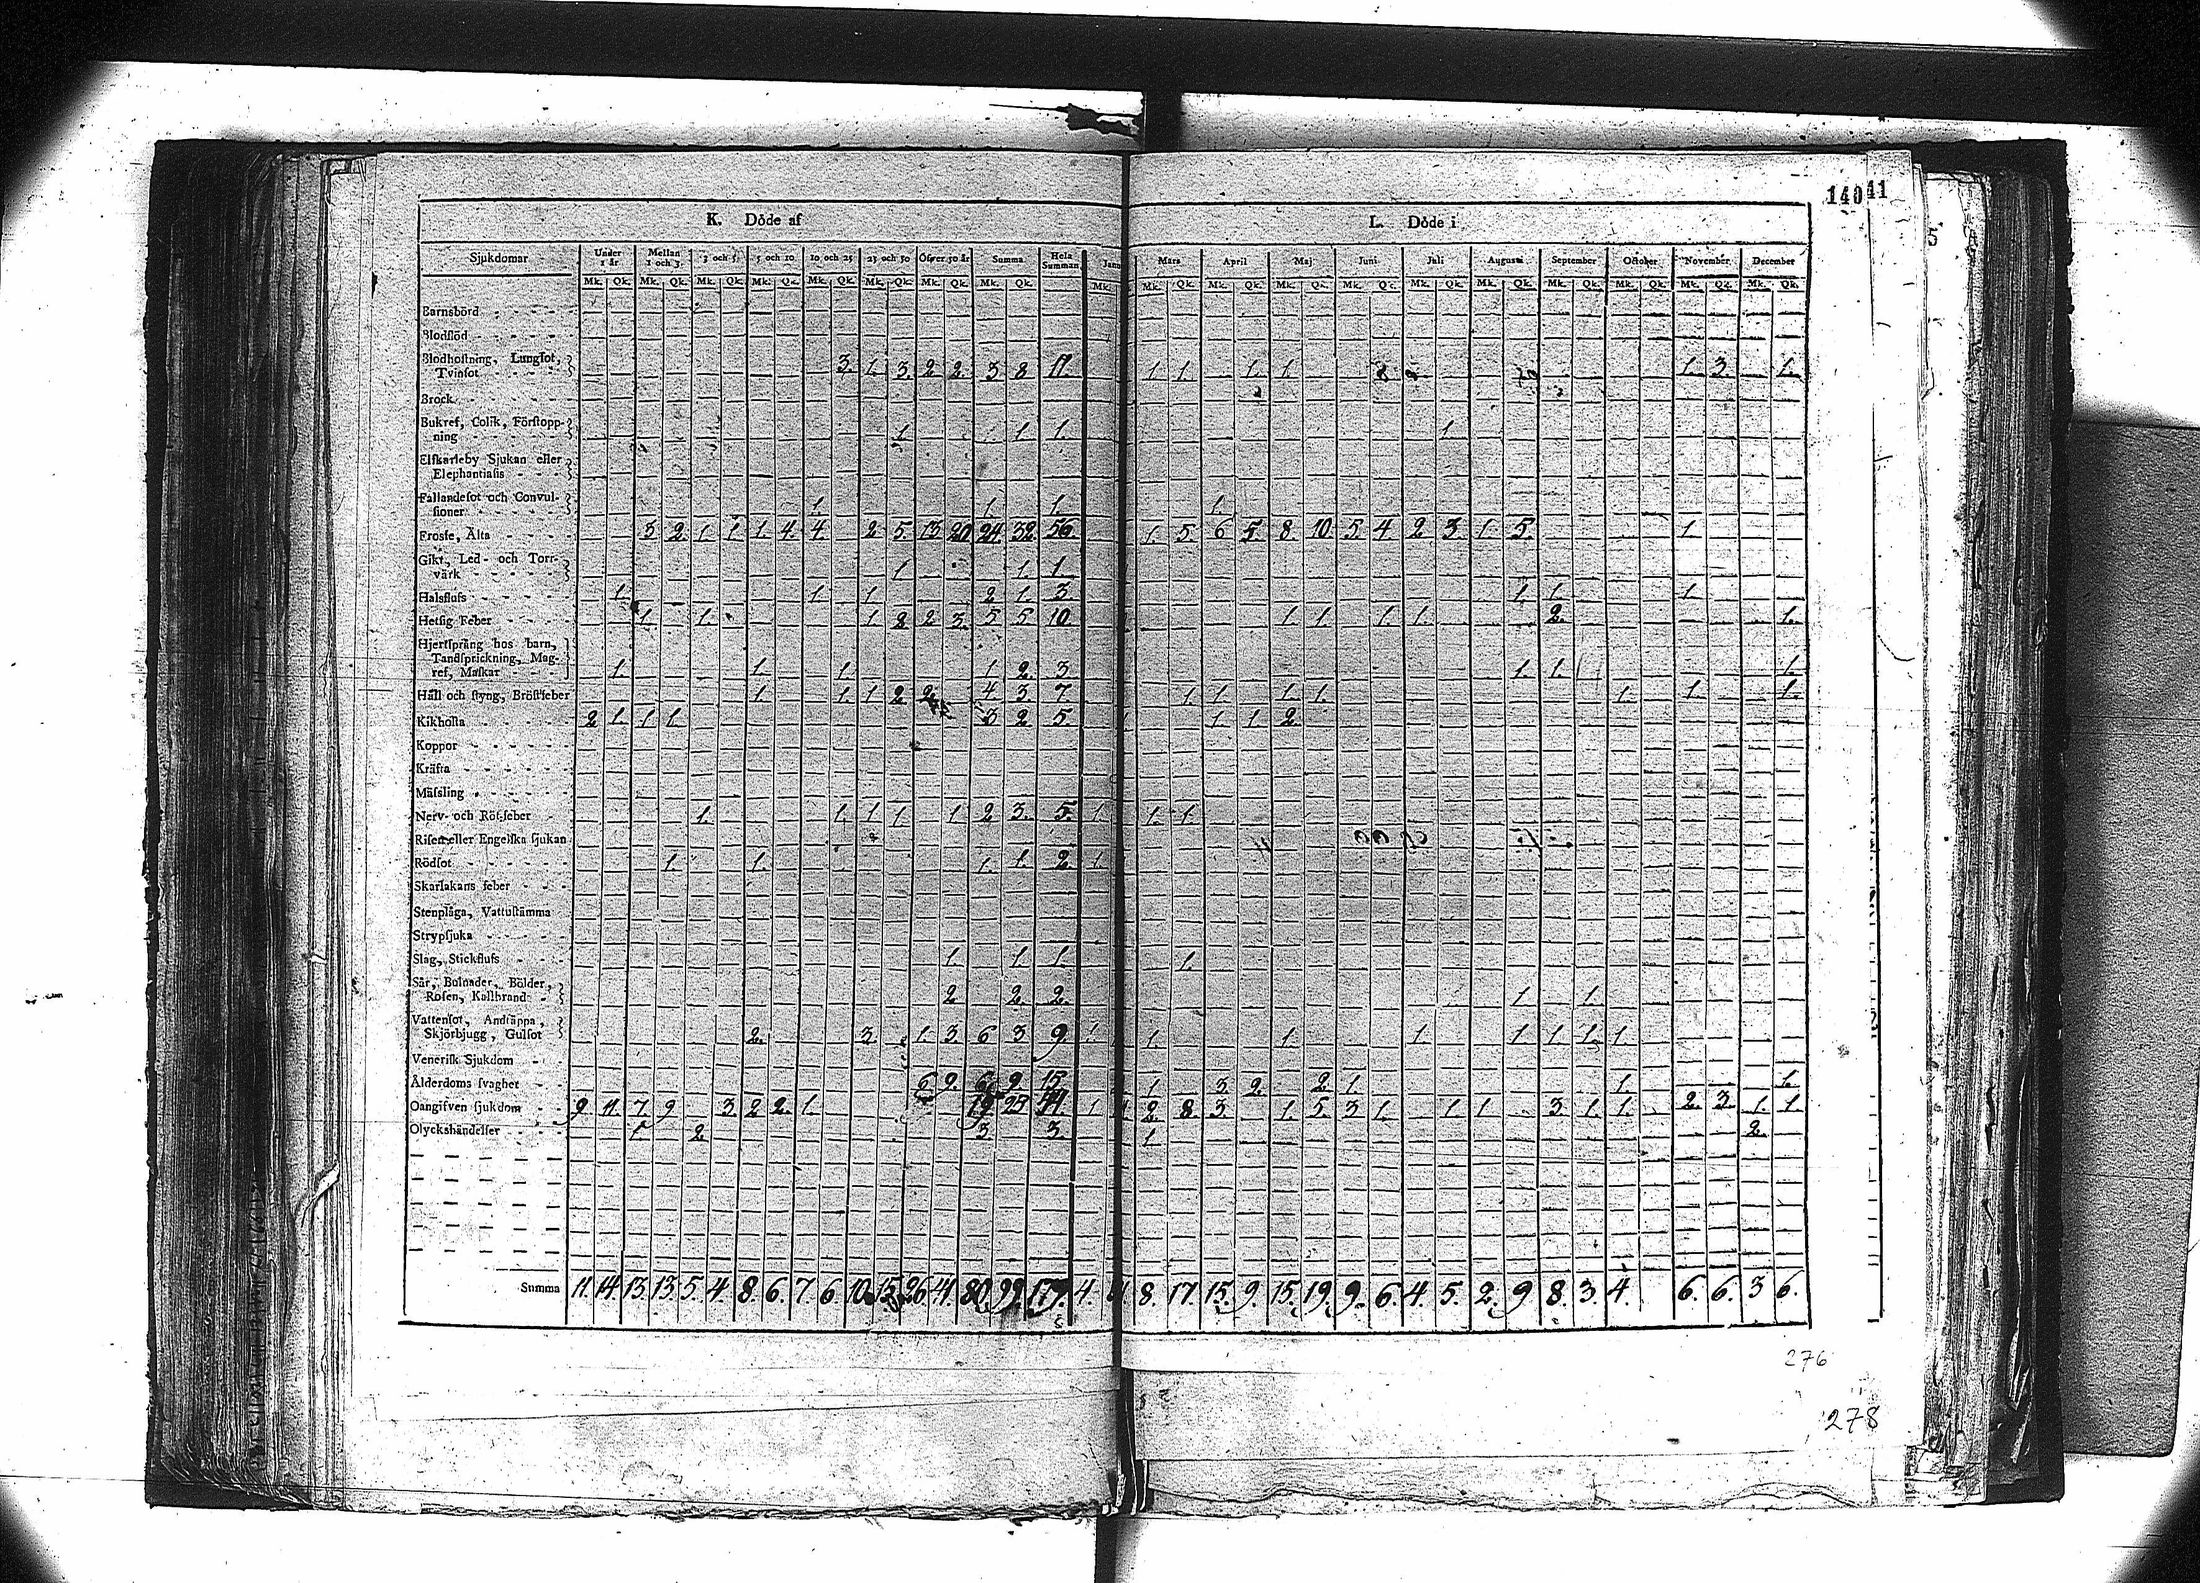 14041
5
K. Döde af
L. Döde i
Sjukdomar Under 1 år Mellan 1 och 3. 3 och 5. 5 och 10 10 och 25 25 och 50 Öfver 50 år Summa Hela Summan
Mars April Maj Juni Juli Augusti September October November December
Mk. Qk. Mk. Qk. Mk. Qk. Mk. Qk. Mk. Qk. Mk. Qk. Mk. Qk. Mk. Qk. Mk.
Mk. Qk. Mk. Qk. Mk. Qk. Mk. Qk. Mk. Qk. Mk. Qk. Mk. Qk. Mk. Qk. Mk. Qk. Mk. Qk.
Barnsbörd
Blodflöd
Blodhoſtning, Lungſot,
Tvinſot 3. 1. 3. 2 2. 3 8 11. 1 1. 1 1. 1. 3. 1.
Brock
Bukref, Colik, Förſtopp-
ning 1 1 1. 1.
Elfkarleby Sjukan eller
Elephantiaſis
Fallandeſot och Convul-
ſioner 1. 1 1. 1.
Froſſe, Älta 3 2. 1 1 1. 4. 4. 2 5. 13 20 24 32. 56. 1 5. 6 5. 8. 10. 5. 4 2. 3. 1 5. 1
Gikt, Led- och Torr-
värk 1 1. 1.
Halsfluſs 1. 1. 1 2 1. 3 1. 1. 1.
Hetſig Feber 1. 1. 1 2 2 3. 5 5 10. 1 1. 1. 1. 2. 1.
Hjertſprång hos barn,
Tandſprickning, Mag-
ref, Maſkar 1. 1. 1. 1 2. 3 1. 1. 1.
Håll och ſtyng, Bröſtfeber 1. 1. 1 2. 2. 4 3 7. 1. 1. 1. 1. 1. 1. 1.
Kikhoſta 2 1. 1 1. 3 2 5. 1 1 2.
Koppor
Kräfta
Mäſsling
Nerv- och Röt-feber 1. 1. 1 1. 1 2 3. 5. 1 1. 1.
Riſen eller Engelſka ſjukan
Rödſot 1. 1. 1. 1. 2 1.
Skarlakans feber
Stenplåga, Vattuſtämma
Strypſjuka
Slag, Stickfluſs 1. 1 1. 1.
Sår, Bolnader, Bölder,
Roſen, Kallbrand 2 2. 2. 1 1.
Vattenſot, Andtäppa,
Skjörbjugg, Gulſot 2. 3. 1. 3. 6 3 9. 1. 1. 1. 1. 1 1 1. 1.
Veneriſk Sjukdom
Ålderdoms ſvaghet 6 9. 6 9. 15. 1 3. 2. 2. 1. 1. 1.
Oangifven ſjukdom 9 11. 7. 9. 3. 2 2. 1. 19 25 44 1 2. 8. 3. 1 5. 3 1. 1. 1. 3. 1. 1. 2. 3. 1. 1.
Olyckshändelſer 1 2. 3. 3. 1. 2.
Summa 11. 14. 13. 13. 5. 4 8. 6. 7 6. 10. 15. 26 41. 80. 99. 179. 4. 8. 17. 15. 9. 15. 19. 9. 6. 4. 5. 2. 9 8. 3. 4. 6. 6. 3 6.
276
278